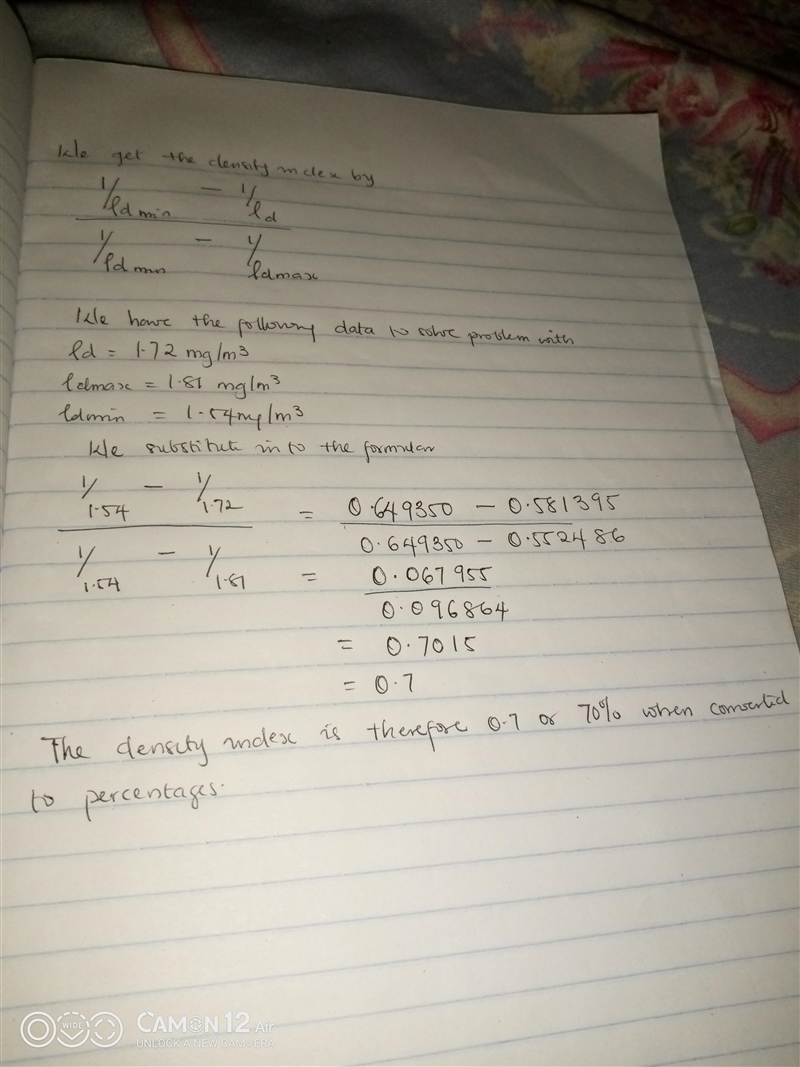 We get the density index by
1/ρd min − 1/ρd
1/ρd min − 1/ρdmax
We have the following data to solve problem with
ρd = 1.72 mg/m³
ρdmax = 1.81 mg/m³
ρdmin = 1.54 mg/m³
We substitute in to the formular
1/1.54 − 1/1.72 = 0.649350 − 0.581395
1/1.54 − 1/1.81 0.649350 − 0.552486
= 0.067955
0.096864
= 0.7015
= 0.7
The density index is therefore 0.7 or 70% when converted
to percentages.
WIDE
CAMON 12 Air
UNLOCK A NEW CAMERA